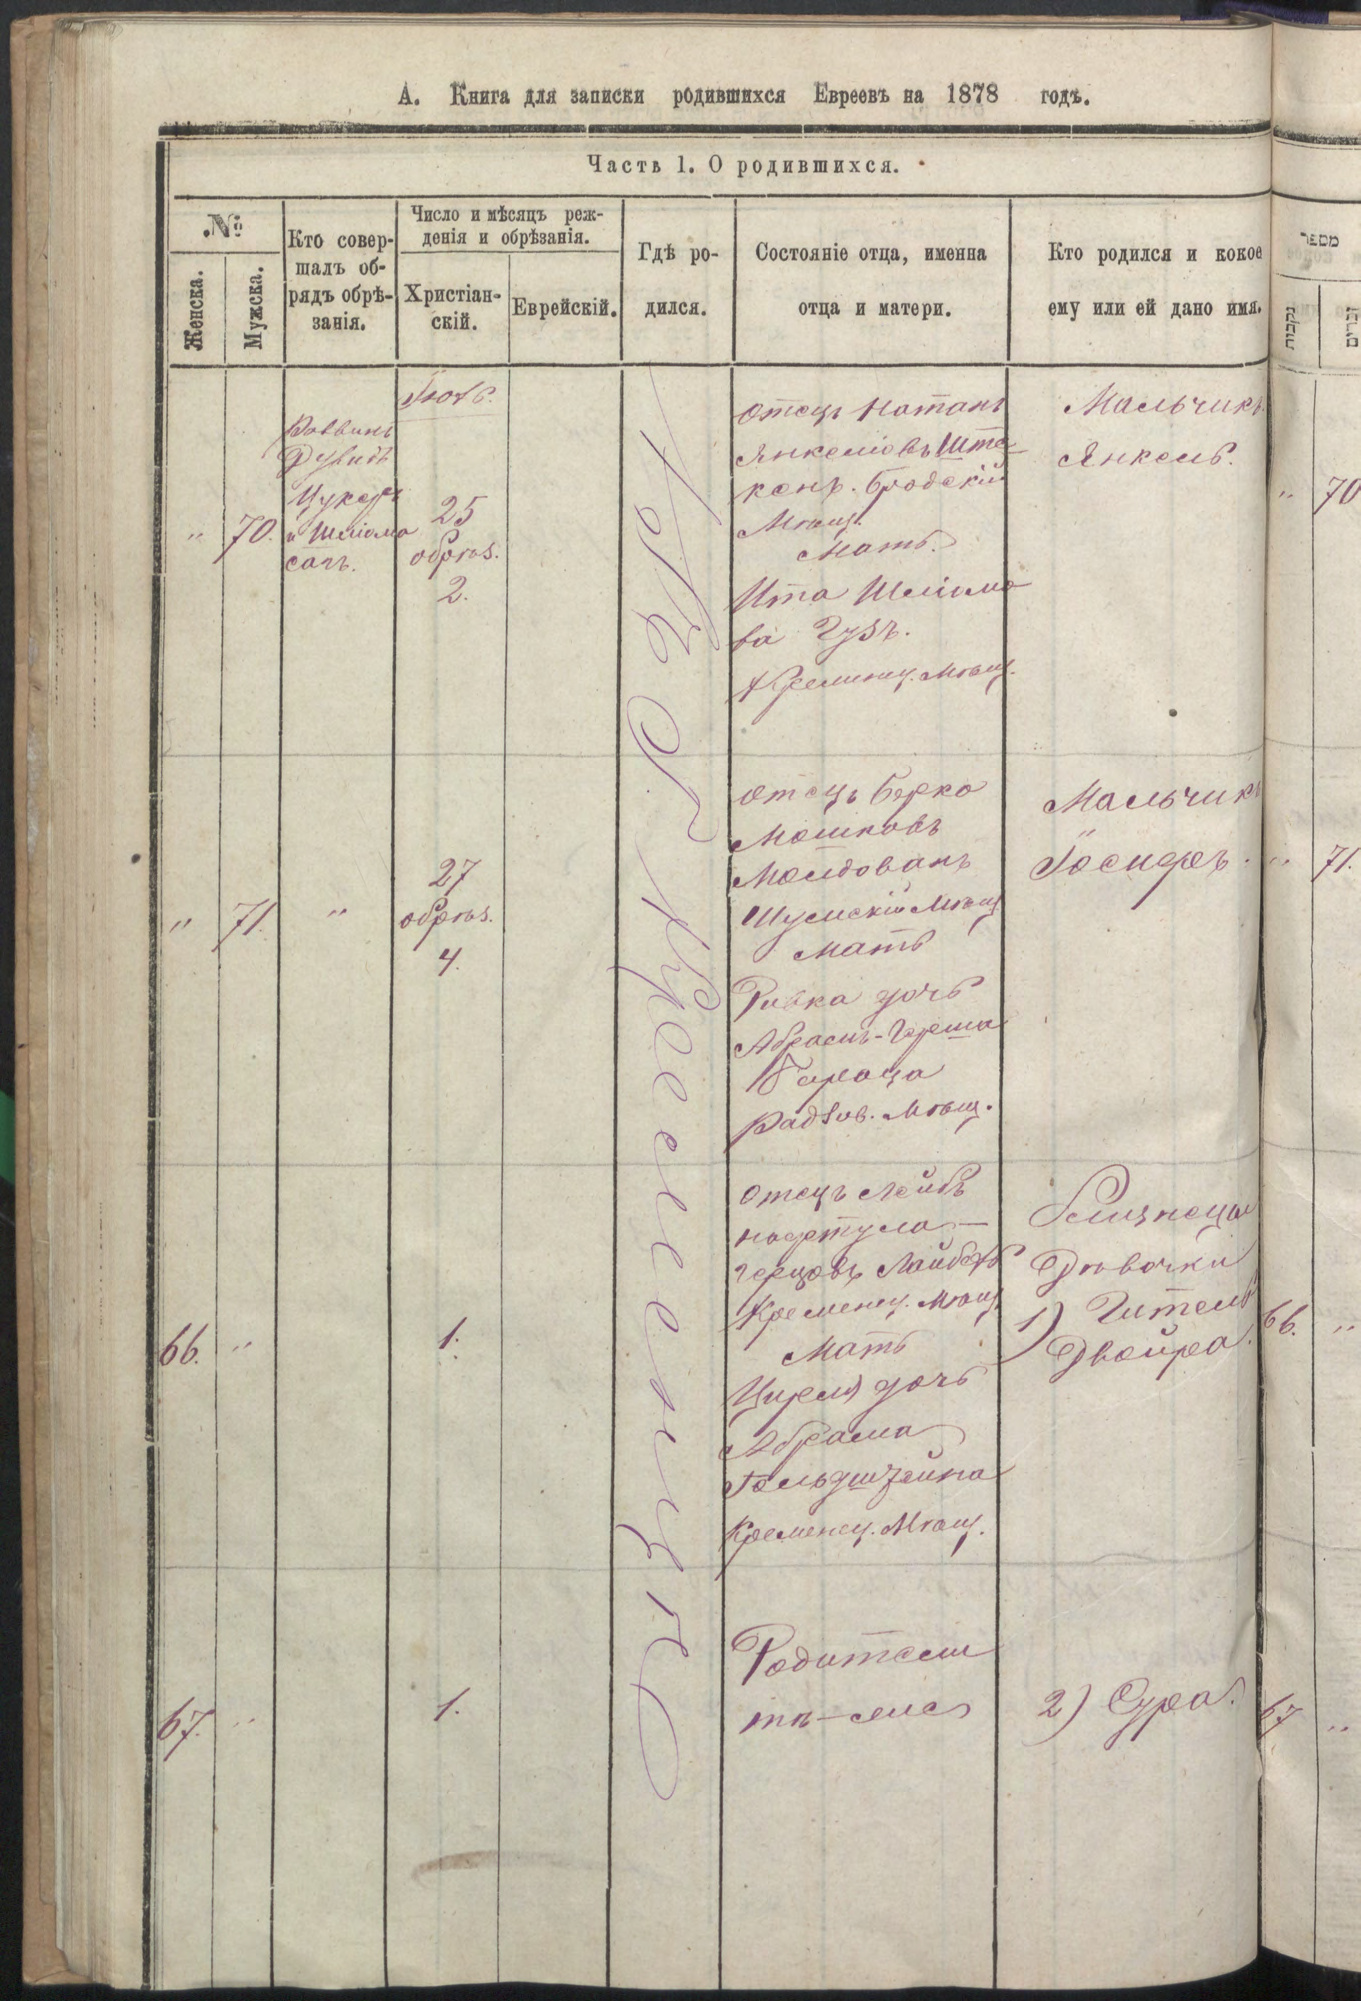 А. Книга для записки родившихся Евреевъ на 1878 годъ.
Часть 1. О родившихся.
№
Женска.
Мужска.
Кто совер-
шалъ об-
рядъ обрѣ-
занія.
Число и мѣсяцъ реж-
денія и обрѣзанія.
Христіан-
скій.
Еврейскій.
Гдѣ ро-
дился.
Состояніе отца, именна
отца и матери.
Кто родился и кокое
ему или ей дано имя.
מספר
נקבות
זכרים
Въ г. Кременцѣ
„ 70.
Раввинъ
Дувидъ
Цукеръ
и Шліома
сачъ.
25
обрѣз.
2.
Отецъ Натанъ
Янкеліовъ Ште-
кенъ. Бродскій
Мѣщ.
Мать.
Ита Шліомо
ва Гузъ.
Кременец. Мѣщ.
Мальчикъ
Янкель.
„ 70
„ 71. „
27
обрѣз.
4.
Отецъ Берко
Мошковъ
Молдованъ
Шумскій Мѣщ
Мать
Ривка дочь
Абрамъ-Герша
Радзив. Мѣщ.
Мальчикъ
Іосифъ.
„ 71.
66. „
1.
Отецъ Лейбъ
Нафтула
Герцовъ
Кременец. Мѣщ
Мать
Цирля дочь
Абрама
Гольдштейна
Кременец. Мѣщ.
Близнецы
Дѣвочки
1) Гитель
Двойра.
66. „
67. „
1.
Родители
тѣ-же
2) Сура.
67 „